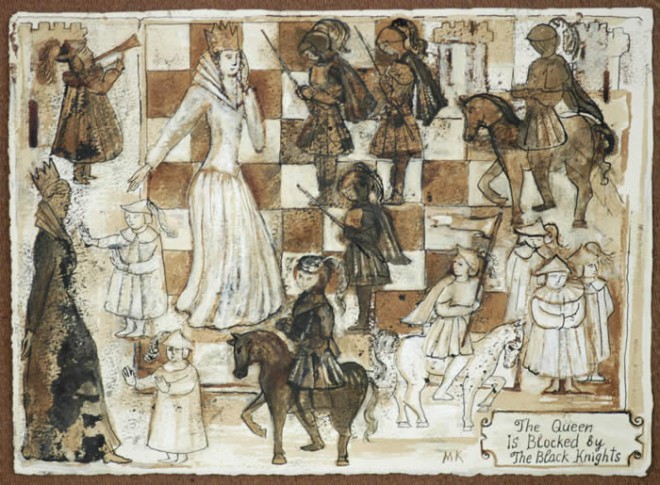 MK
The Queen
is Blocked by
The Black Knights